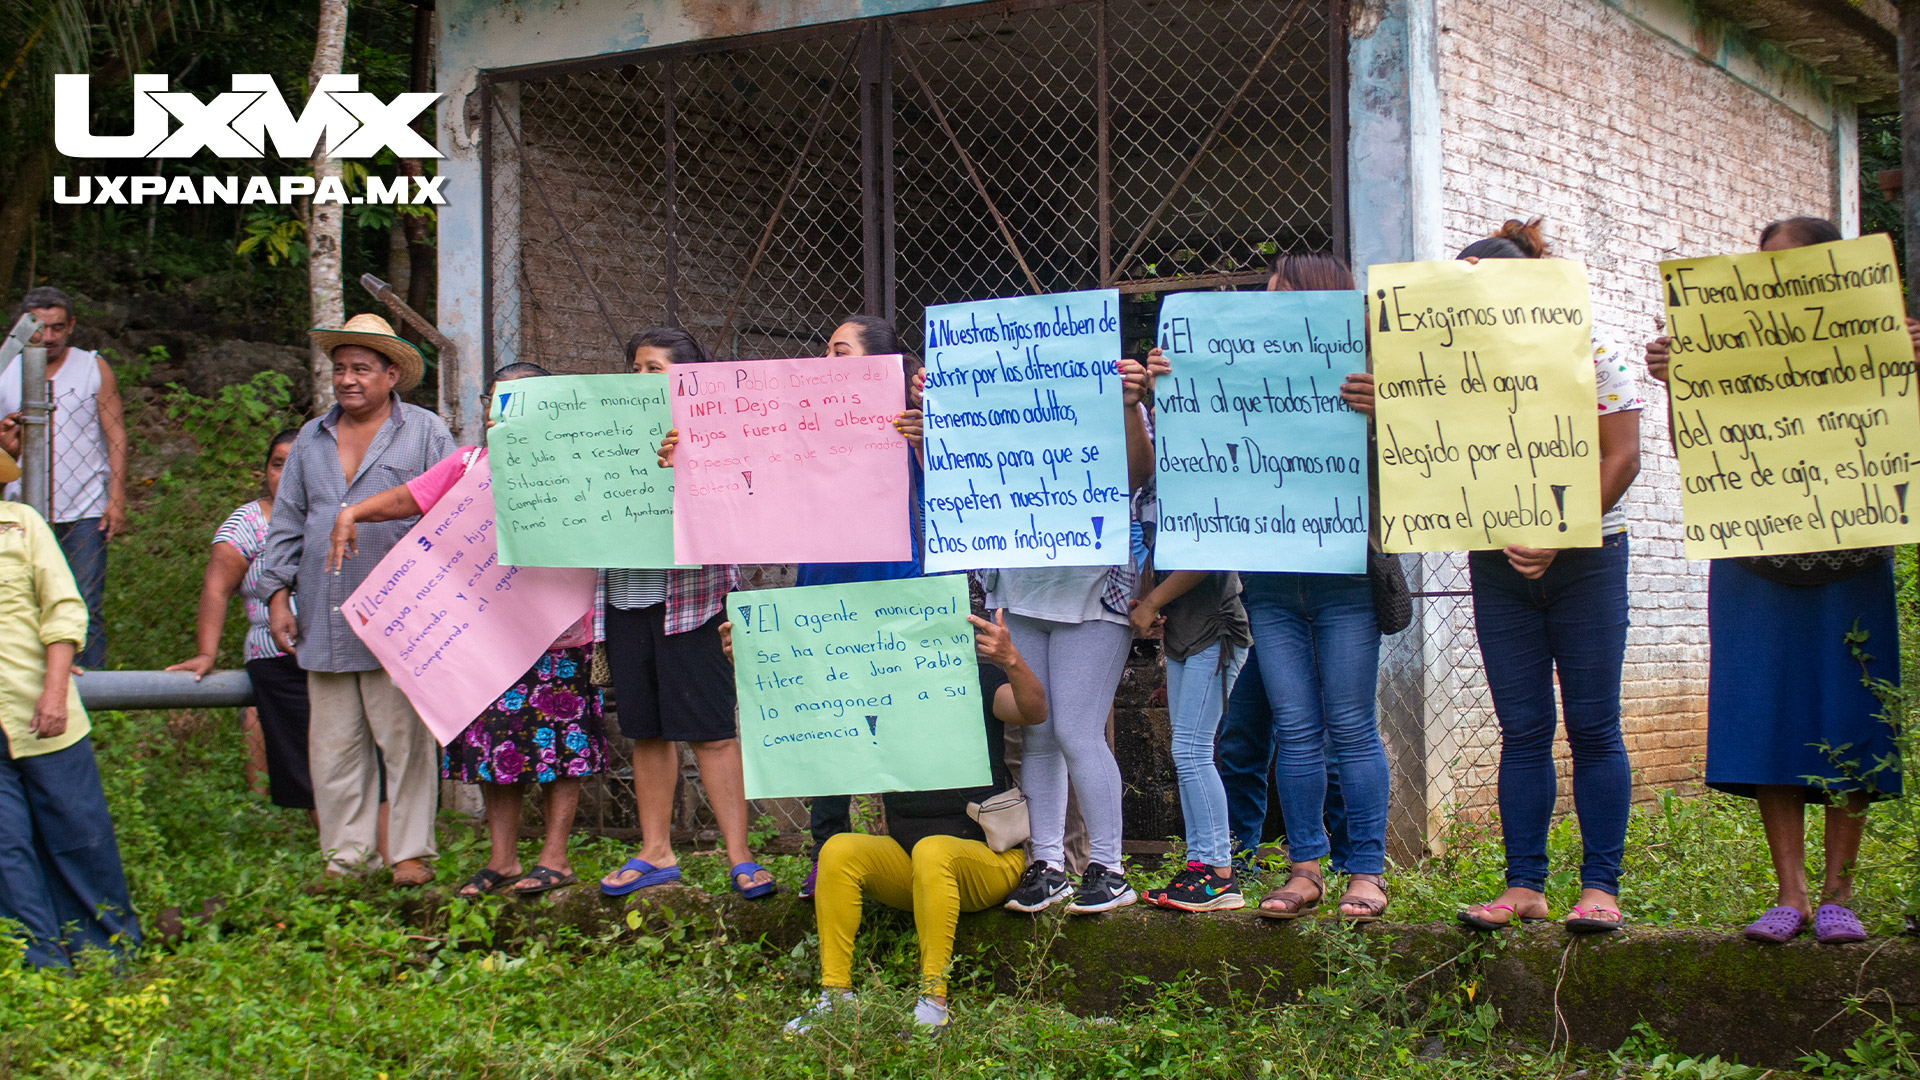 UxMx
UXPANAPA.MX
¡Llevamos 3 meses si
agua, nuestros hijos
sofriendo y estam
comprando el agua
¡El agente municipal
se comprometió el
de julio a resolver l
Situación y no ha
Complido el acuerdo q
firmó con el Ayuntami
¡Juan Pablo, Director del
INPI. Dejó a mis
hijos fuera del albergue
apesar de que soy madre
soltera!
¡El agente municipal
se ha convertido en un
titere de Juan Pablo
lo mangonea a su
conveniencia!
¡Nuestros hijos no deben de
sufrir por las difencias que
tenemos como adultos,
luchemos para que se
respeten nuestros dere-
chos como índigenas!
¡El agua es un líquido
vital al que todos tenem
derecho! Digamos no a
la injusticia si a la equidad.
¡Exigimos un nuevo
comité del agua
elegido por el pueblo
y para el pueblo!
¡Fuera la administración
de Juan Pablo Zamora,
Son 17 años cobrando el pago
del agua, sin ningún
corte de caja, es lo úni-
co que quiere el pueblo!